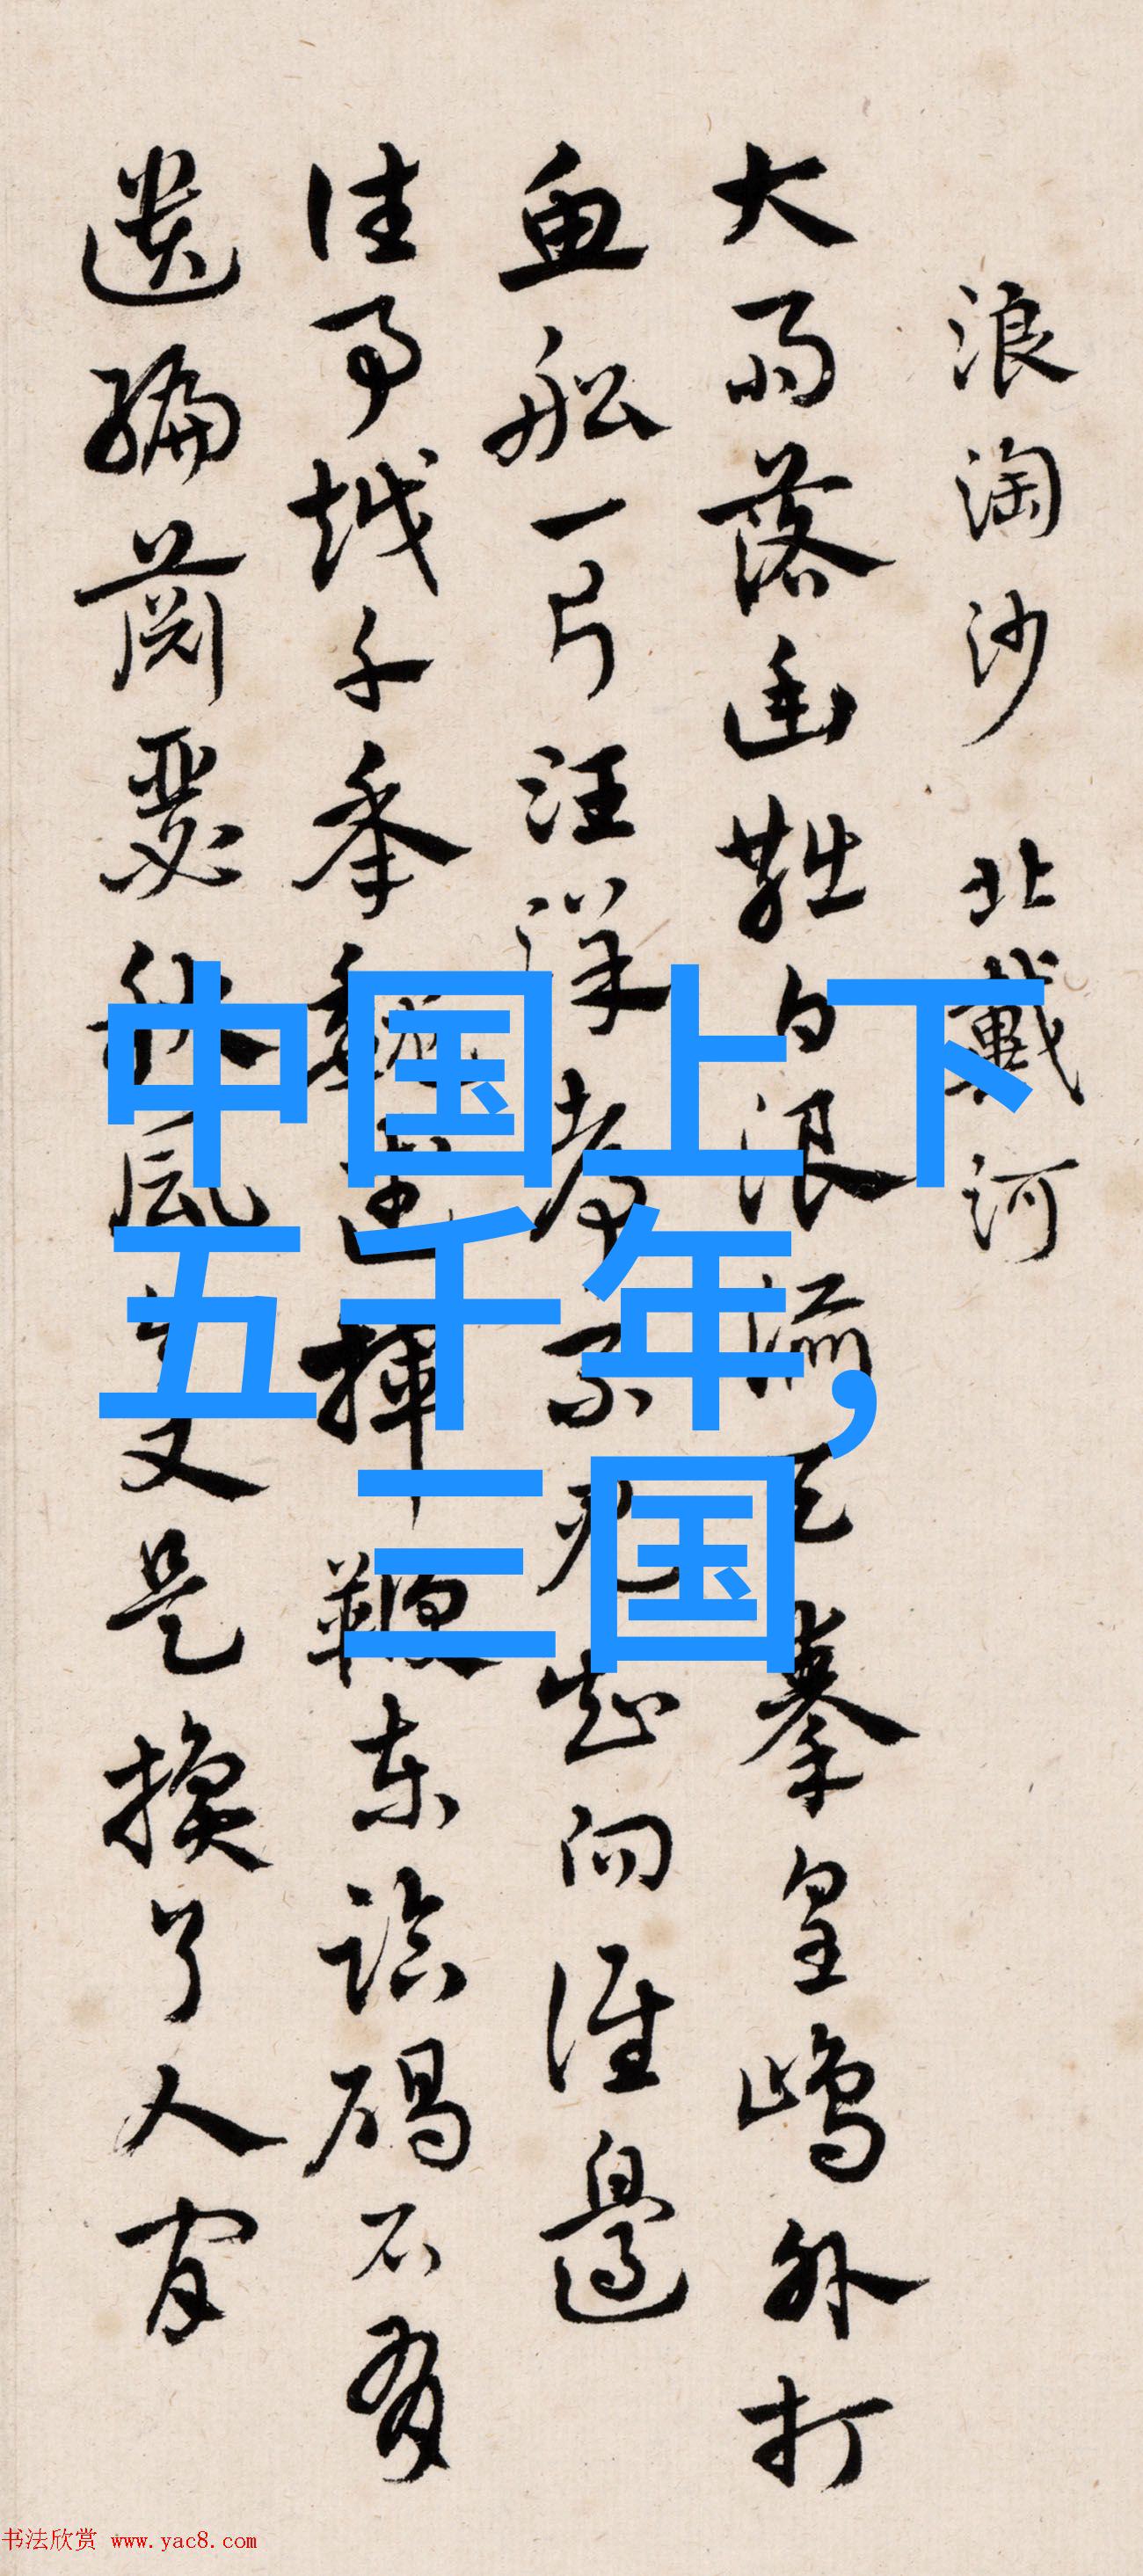 浪淘沙 北戴河
大雨落幽燕白浪滔天秦皇島外打
魚船一片汪洋都不見知向誰邊
往事越千年魏武揮鞭東臨碣石有
遺編蕭瑟秋風今又是換了人間
中国上下
五千年,
三国
书法欣赏 www.yac8.com